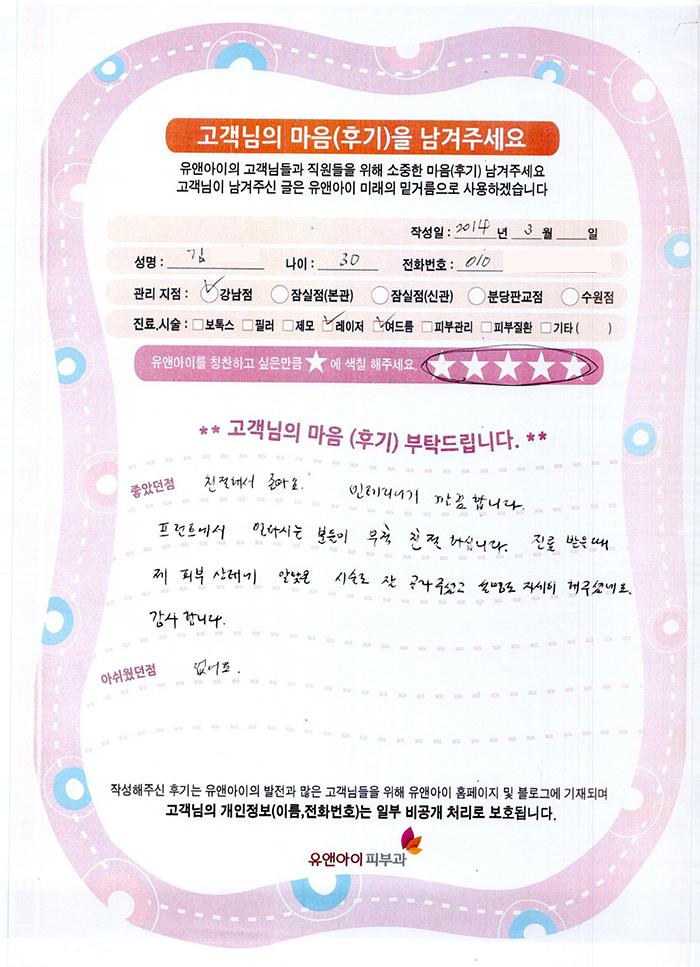 고객님의 마음(후기)을 남겨주세요
유앤아이의 고객님들과 직원들을 위해 소중한 마음(후기) 남겨주세요
고객님이 남겨주신 글은 유앤아이 미래의 밑거름으로 사용하겠습니다
작성일 : 2014 년 3 월 ____ 일
성명 : 김 나이 : 30 전화번호 : 010
관리 지점 : 강남점 잠실점(본관) 잠실점(신관) 분당판교점 수원점
진료,시술 : 보톡스 필러 제모 레이저 여드름 피부관리 피부질환 기타 ( )
유앤아이를 칭찬하고 싶은만큼 ★에 색칠 해주세요. ★★★★★
** 고객님의 마음 (후기) 부탁드립니다. **
좋았던점 친절해서 좋아요. 인테리어가 깔끔합니다.
프런트에서 일하시는 분들이 무척 친절 하십니다. 진료 받을때
제 피부 상태에 알맞은 시술로 잘 골라주셨고 설명도 자세히 해주셨네요.
감사 합니다.
아쉬웠던점 없어요.
작성해주신 후기는 유앤아이의 발전과 많은 고객님들을 위해 유앤아이 홈페이지 및 블로그에 기재되며
고객님의 개인정보(이름,전화번호)는 일부 비공개 처리로 보호됩니다.
유앤아이피부과